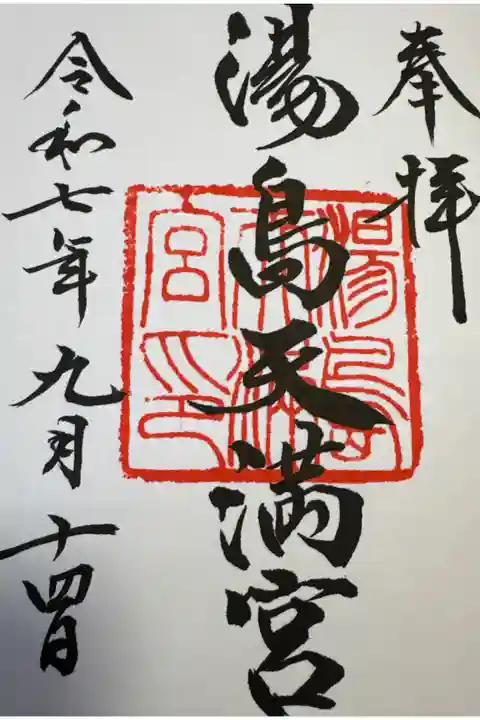 奉拝
湯島天満宮
湯島天満宮印
令和七年九月十四日